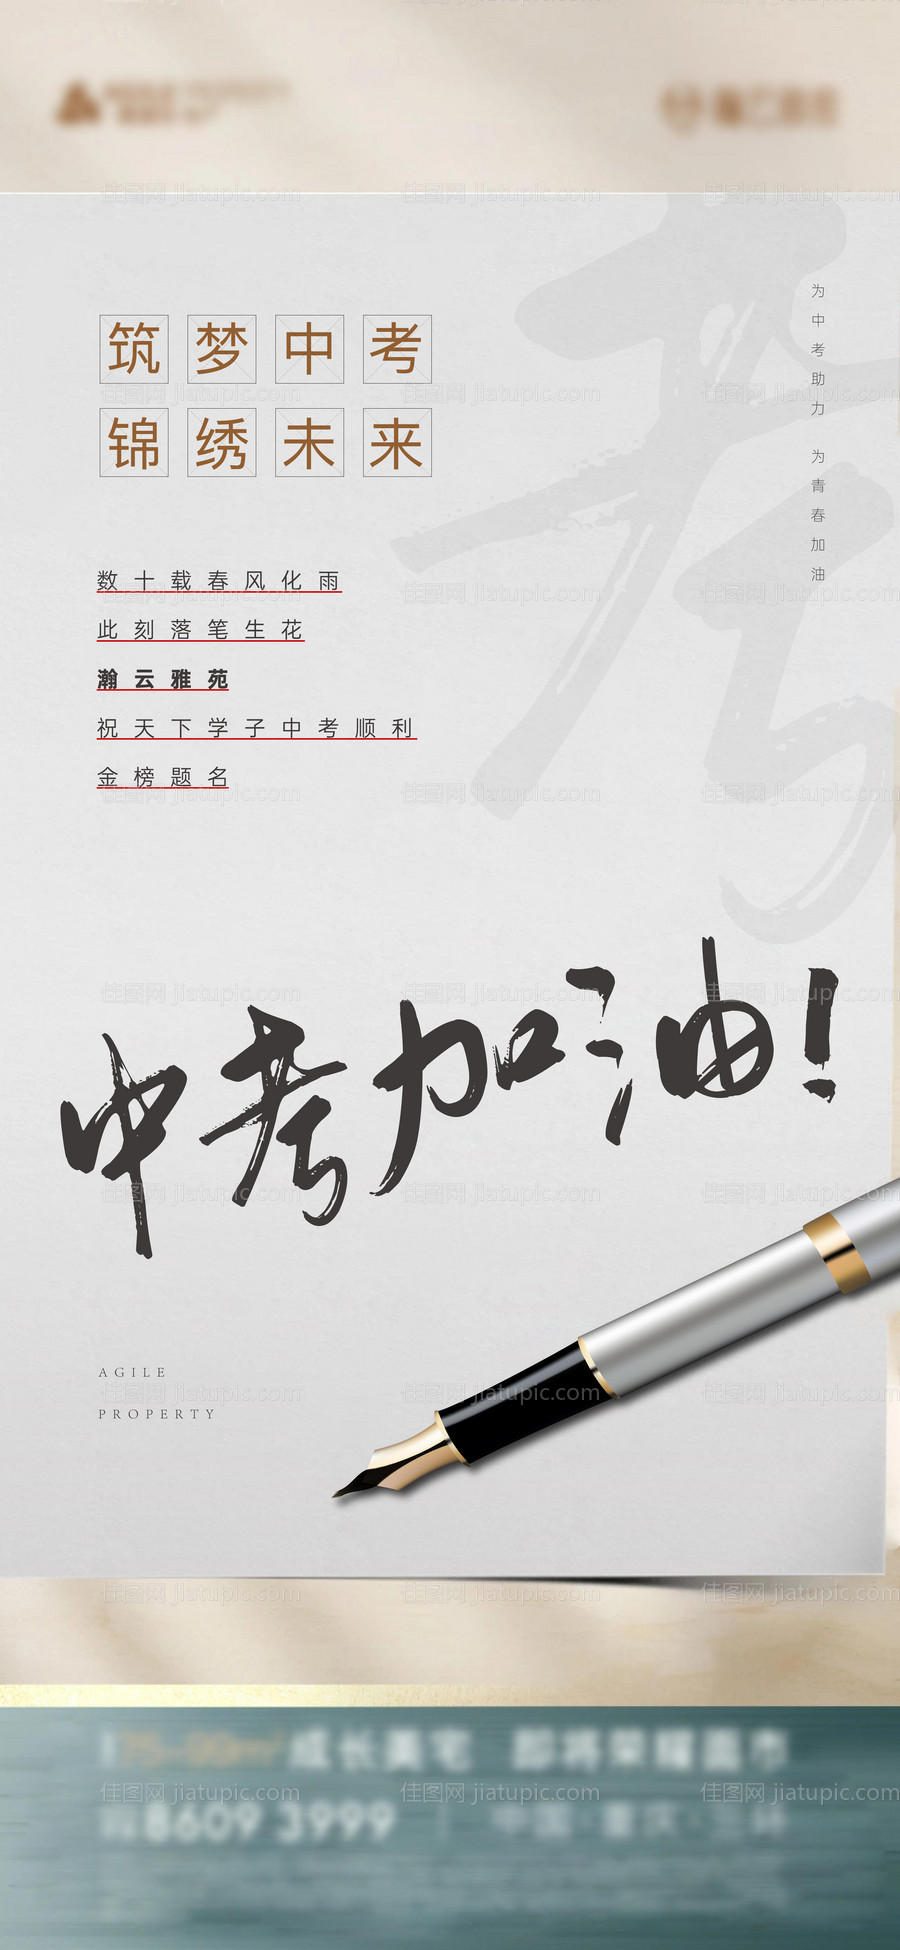 筑梦中考
锦绣未来
为中考助力 为青春加油
数十载春风化雨
此刻落笔生花
瀚云雅苑
祝天下学子中考顺利
金榜题名
考
中考加油!
AGILE
PROPERTY
成长美宅 即将荣耀面市
8609 3999
佳图网 jiatupic.com